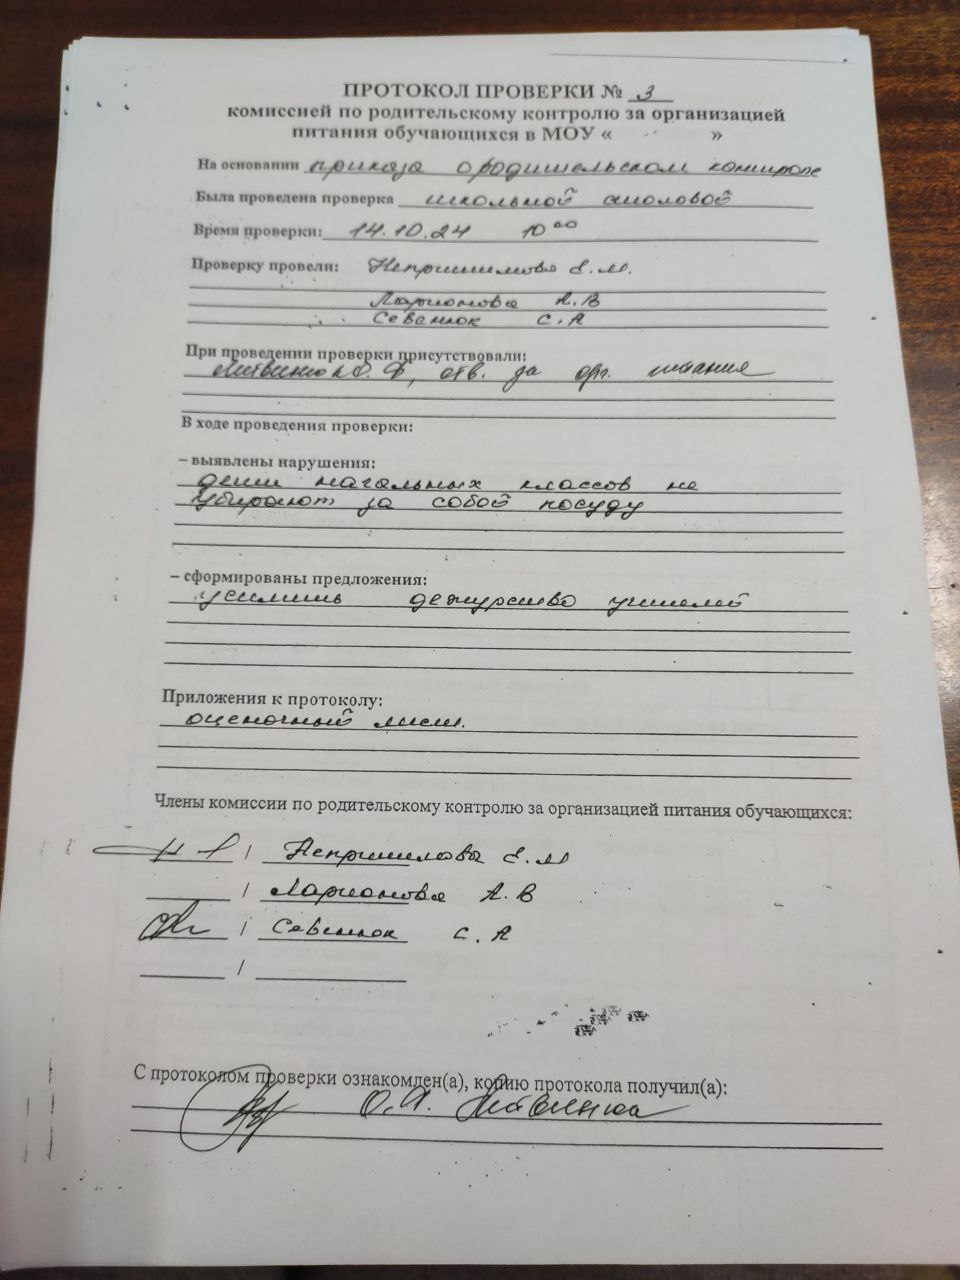 ПРОТОКОЛ ПРОВЕРКИ № 3
комиссией по родительскому контролю за организацией
питания обучающихся в МОУ « »
На основании приказа о родительском контроле
Была проведена проверка школьной столовой
Время проверки: 14.10.24 10 00
Проверку провели: Е.М.
Ларионова А.В
Севанюк С.А
При проведении проверки присутствовали:
отв. за орг. питания
В ходе проведения проверки:
– выявлены нарушения:
дети начальных классов не
убирают за собой посуду
– сформированы предложения:
усилить дежурство учителей
Приложения к протоколу:
оценочный лист.
Члены комиссии по родительскому контролю за организацией питания обучающихся:
/ Е.М
/ Ларионова А.В
/ Севанюк С.А
/
С протоколом проверки ознакомлен(а), копию протокола получил(а):